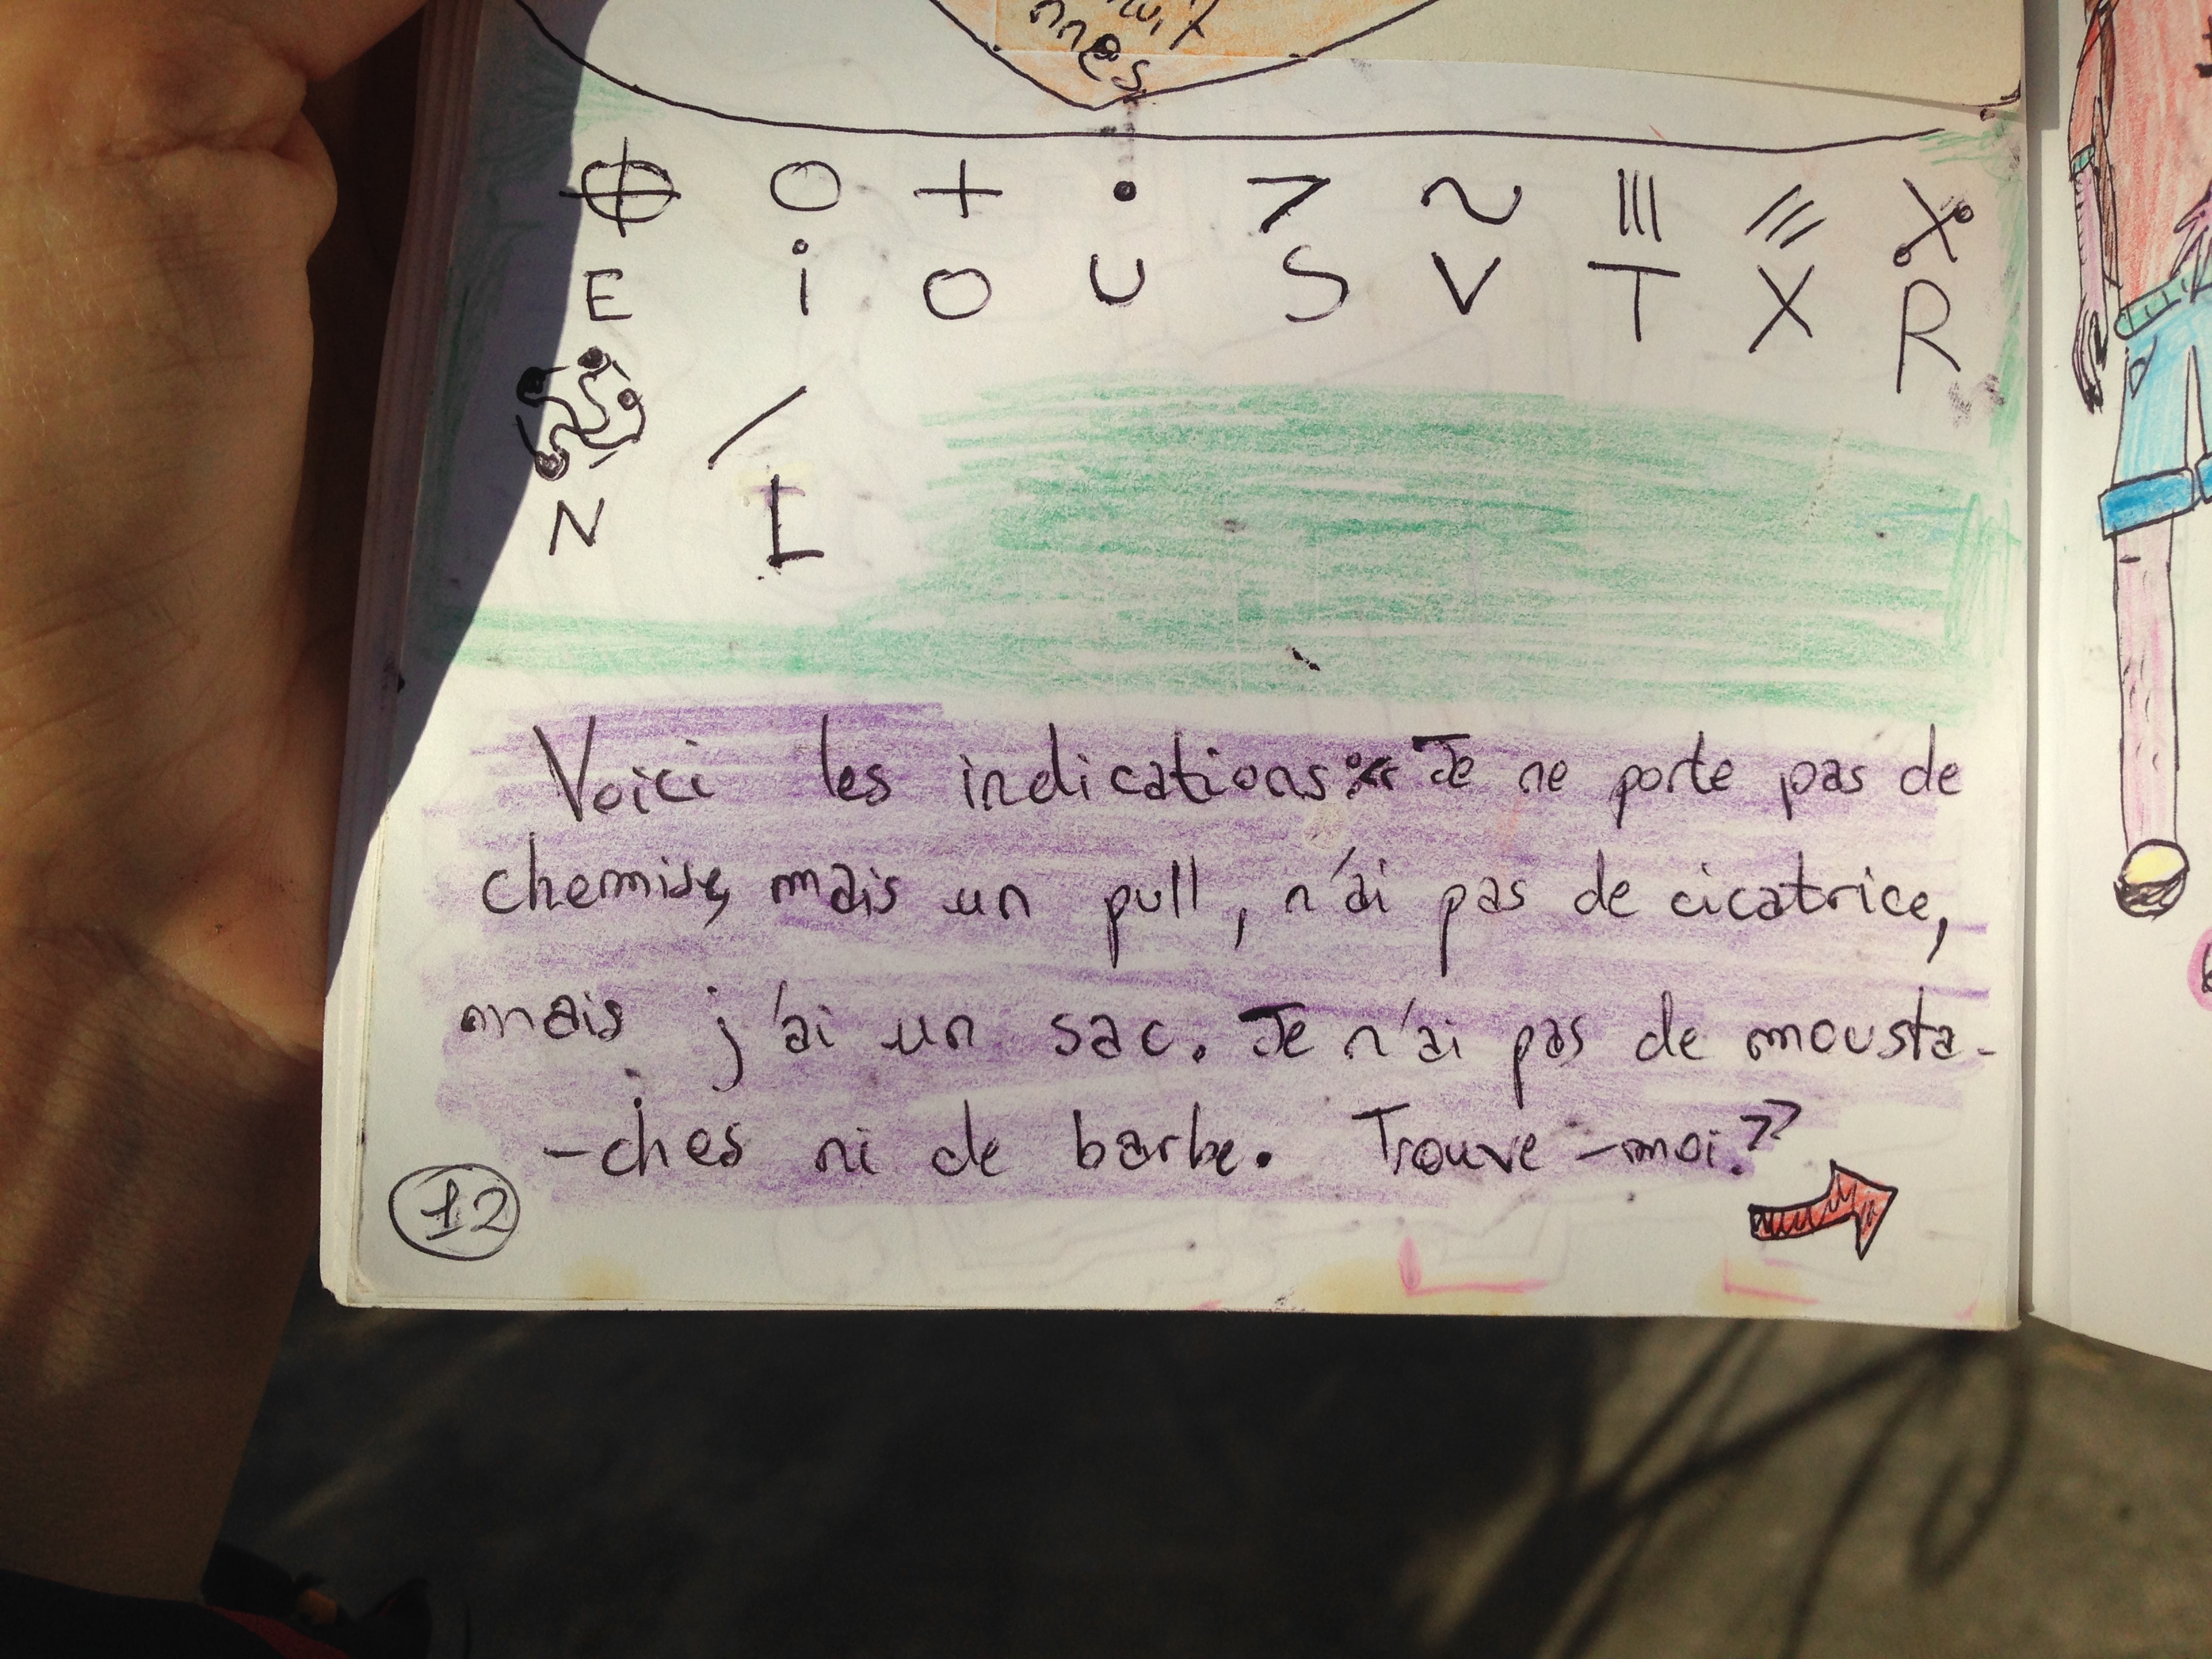 nes
E i O U S V T X R
N L
Voici les indications : Je ne porte pas de
chemise, mais un pull, n'ai pas de cicatrice,
mais j'ai un sac. Je n'ai pas de mousta-
-ches ni de barbe. Trouve-moi.»
12